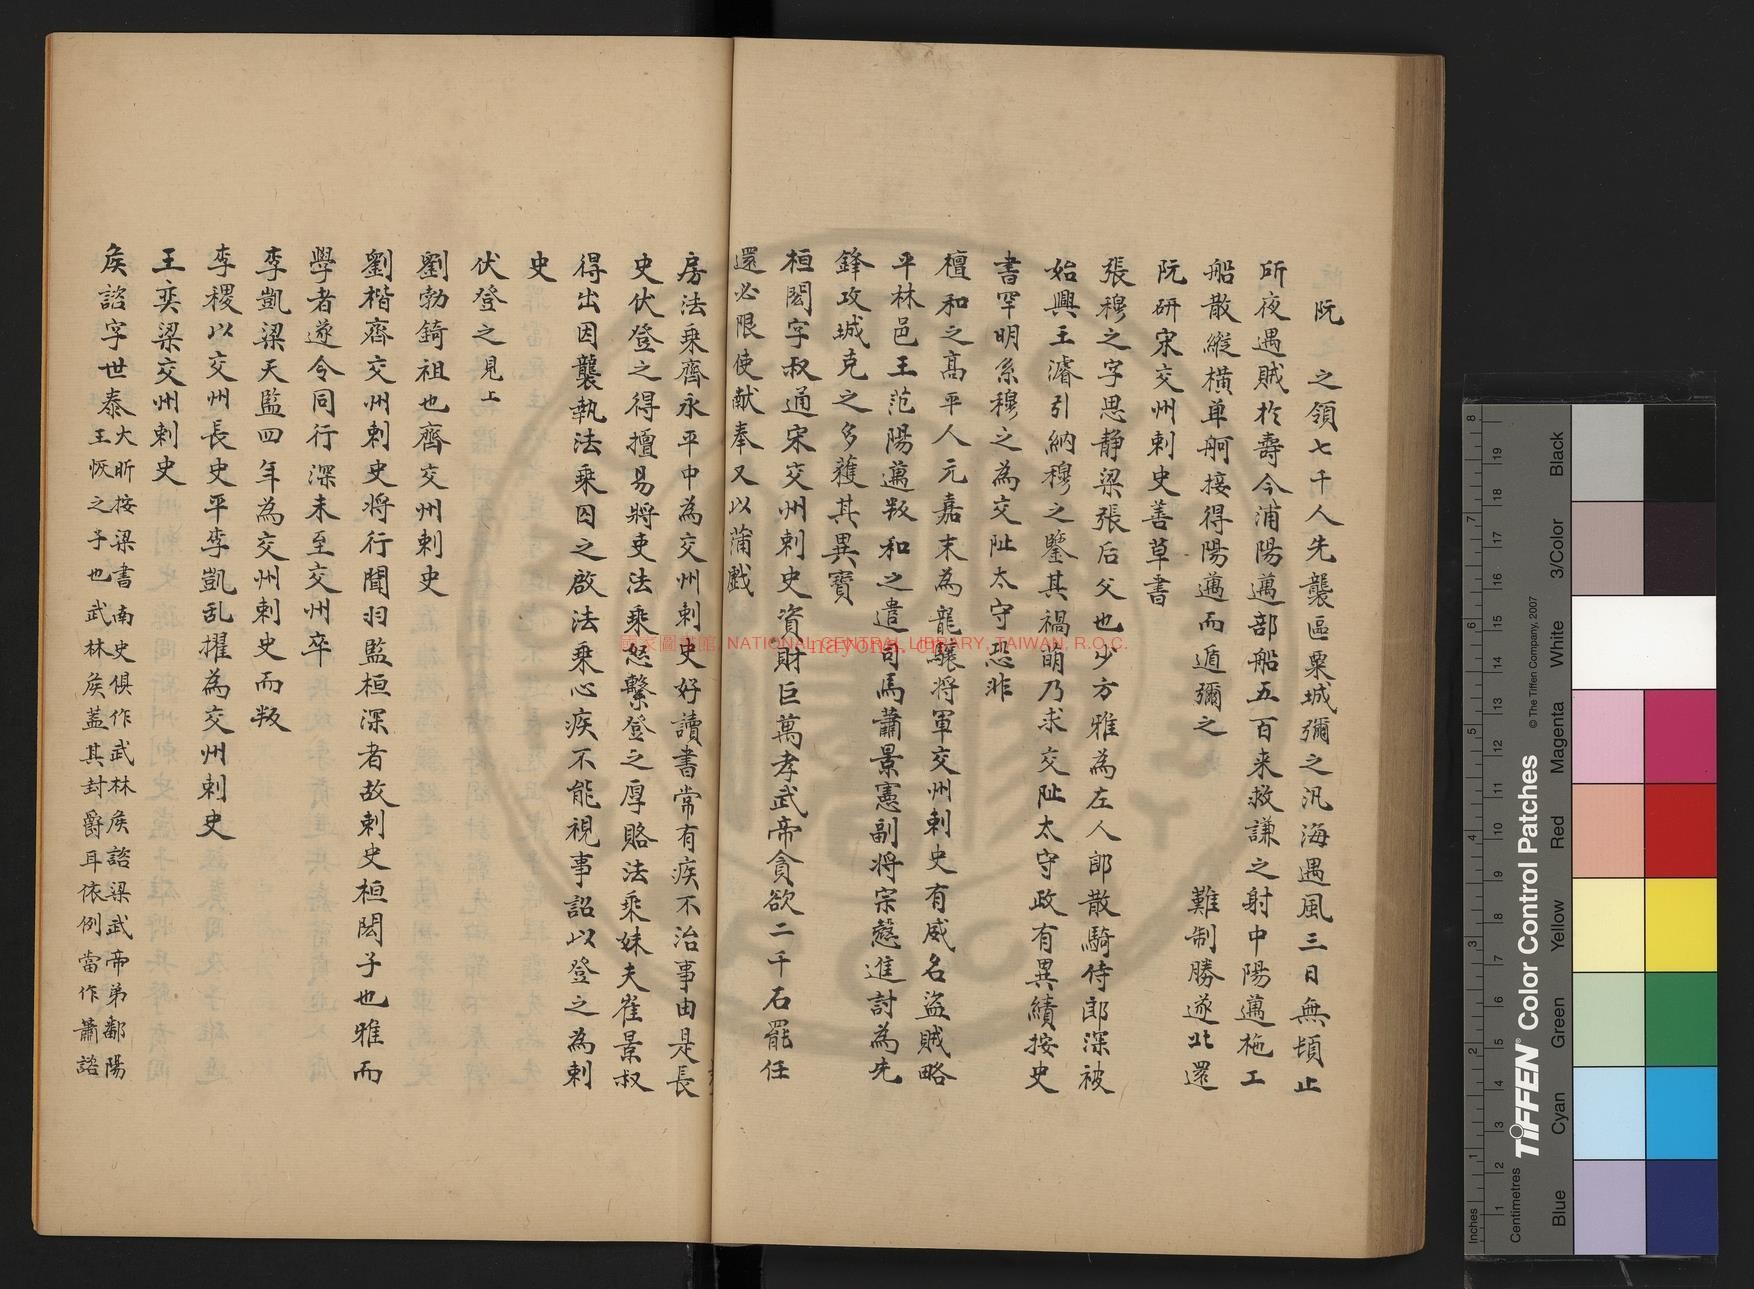 阮　之領七千人先襲區粟城彌之汎海遇風三日無頓止
所夜遇賊於壽令浦陽邁部船五百来救謙之射中陽邁柂工
船散縱橫單舸接得陽邁而遁彌之　難制勝遂北還
阮研宋交州刺史善草書
張穆之字思静梁張后父也少方雅為左人郎散騎侍郎深被
始興王濬引納穆之鑒其禍萌乃求交阯太守政有異績按史
書罕明系穆之為交阯太守恐非
檀和之髙平人元嘉末為龍驤将軍交州刺史有威名盗賊略
平林邑王范陽邁叛和之遣司馬蕭景憲副将宗慤進討為先
鋒攻城克之多獲其異寶
桓閎字叔通宋交州刺史資財巨萬孝武帝貪欲二千石罷任
還必限使献奉又以蒲戲
房法乗齊永平中為交州刺史好讀書常有疾不治事由是長
史伏登之得擅易將吏法乗怒繫登之厚賂法乗妹夫崔景叔
得出因襲執法乗囚之啟法乗心疾不能視事詔以登之為刺
史
伏登之見上
劉勃錡祖也齊交州刺史
劉楷齊交州刺史將行聞羽監桓深者故刺史桓閎子也雅而
學者遂令同行深未至交州卒
李凱梁天監四年為交州刺史而叛
李稷以交州長史平李凱乱擢為交州刺史
王奕梁交州刺史
矦諮字世泰大昕按梁書南史俱作武林矦諮梁武帝弟鄱陽
王恢之子也武林矦葢其封爵耳依例當作蕭諮
國家圖書館, NATIONAL CENTRAL LIBRARY, TAIWAN, R.O.C.
Inches
Centimetres
TIFFEN® Color Control Patches
© The Tiffen Company, 2007
Blue
Cyan
Green
Yellow
Red
Magenta
White
3/Color
Black